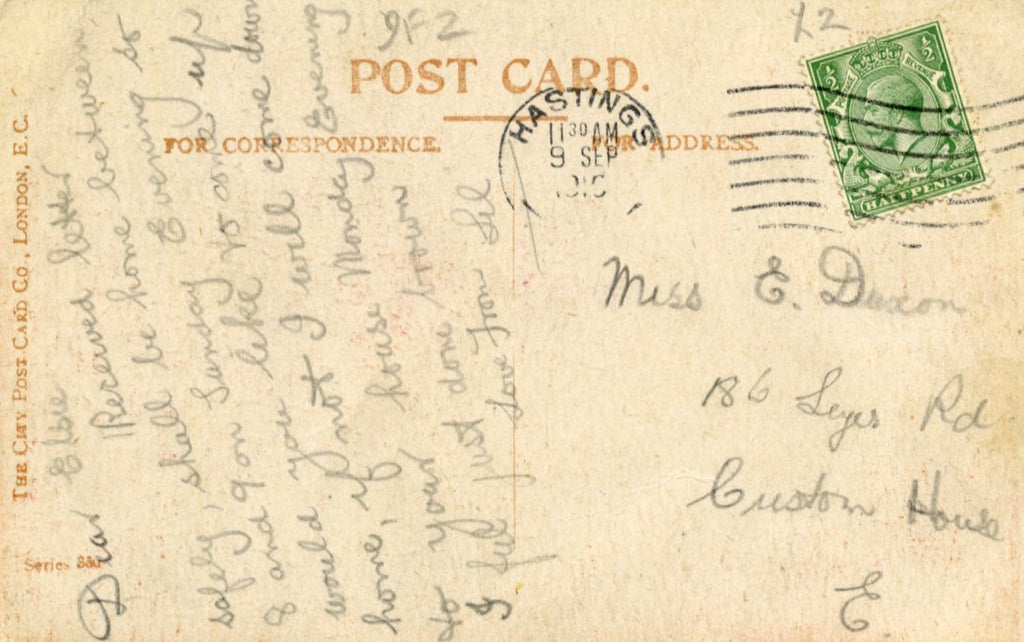 9F2
L2
POST CARD.
FOR CORRESPONDENCE.
FOR ADDRESS.
THE CITY POST CARD CO., LONDON, E.C.
Series 330
HASTINGS
11 30 AM
9 SEP
½ ½
REVENUE
HALFPENNY
Dear Elsie
Received letter
safely, shall be home between
8 and 9 on Sunday Evening so
would you like to come up
home, if not I will come down
to your house Monday Evening
I feel just done brown
Love from Lil
Miss E. Daxon
186 Leyes Rd
Custom House
E